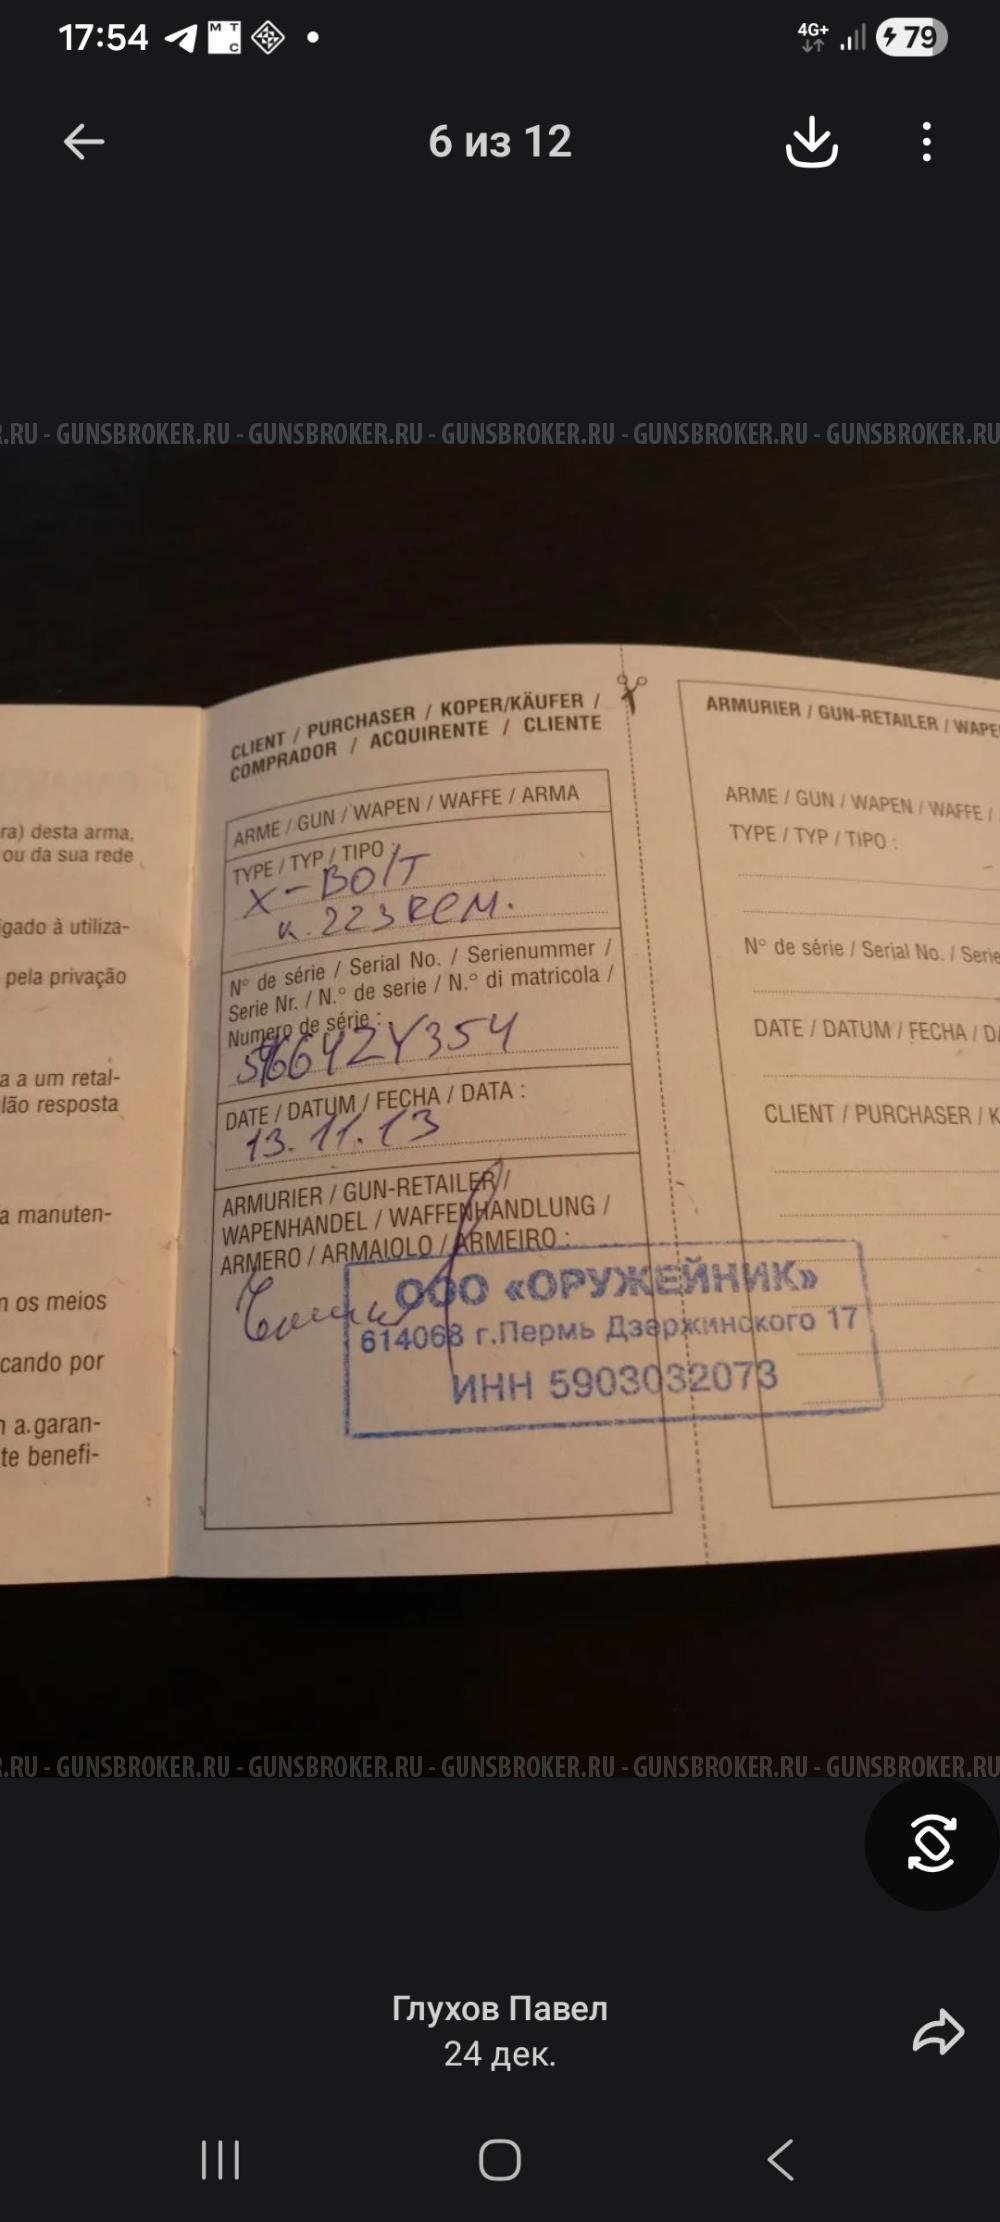 17:54
4G+
79
6 из 12
.RU - GUNSBROKER.RU - GUNSBROKER.RU - GUNSBROKER.RU - GUNSBROKER.RU
CLIENT / PURCHASER / KOPER/KÄUFER /
COMPRADOR / ACQUIRENTE / CLIENTE
ARME / GUN / WAPEN / WAFFE / ARMA
TYPE / TYP / TIPO :
X-BOLT
к. 223 REM.
N° de série / Serial No. / Serienummer /
Serie Nr. / N.° de serie / N.° di matricola /
Numero de série :
DATE / DATUM / FECHA / DATA :
13.11.13
ARMURIER / GUN-RETAILER /
WAPENHANDEL / WAFFENHANDLUNG /
ARMERO / ARMAIOLO / ARMEIRO :
ООО «ОРУЖЕЙНИК»
614068 г.Пермь Дзержинского 17
ИНН 5903032073
ra) desta arma,
ou da sua rede
gado à utiliza-
pela privação
a a um retal-
lão resposta
a manuten-
os meios
cando por
a.garan-
te benefi-
ARMURIER / GUN-RETAILER / WAPE
ARME / GUN / WAPEN / WAFFE /
TYPE / TYP / TIPO :
N° de série / Serial No. / Serie
DATE / DATUM / FECHA / DA
CLIENT / PURCHASER / K
.RU - GUNSBROKER.RU - GUNSBROKER.RU - GUNSBROKER.RU - GUNSBROKER.RU
Глухов Павел
24 дек.